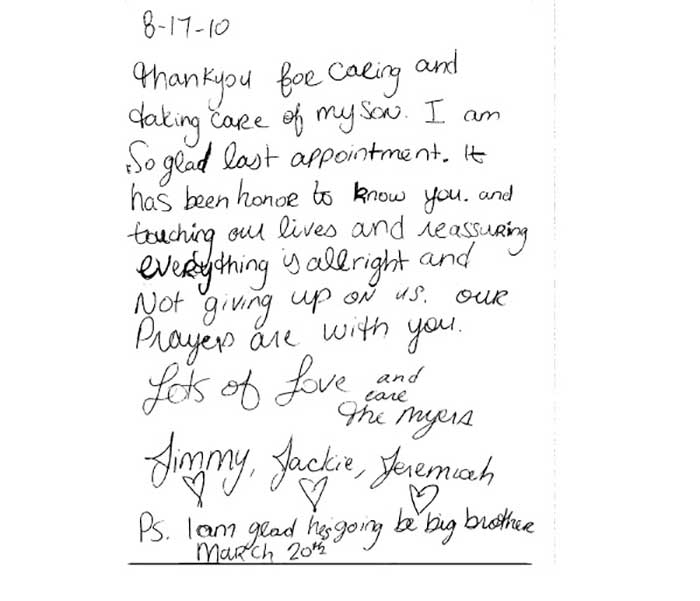 8-17-10
Thankyou for caring and
taking care of my son. I am
So glad last appointment. It
has been honor to know you. and
touching our lives and reassuring
everything is allright and
Not giving up on us. our
Prayers are with you.
Lots of Love and
care
The Myers
Jimmy, Jackie, Jeremiah
Ps. I am glad hes going be big brother
March 20th